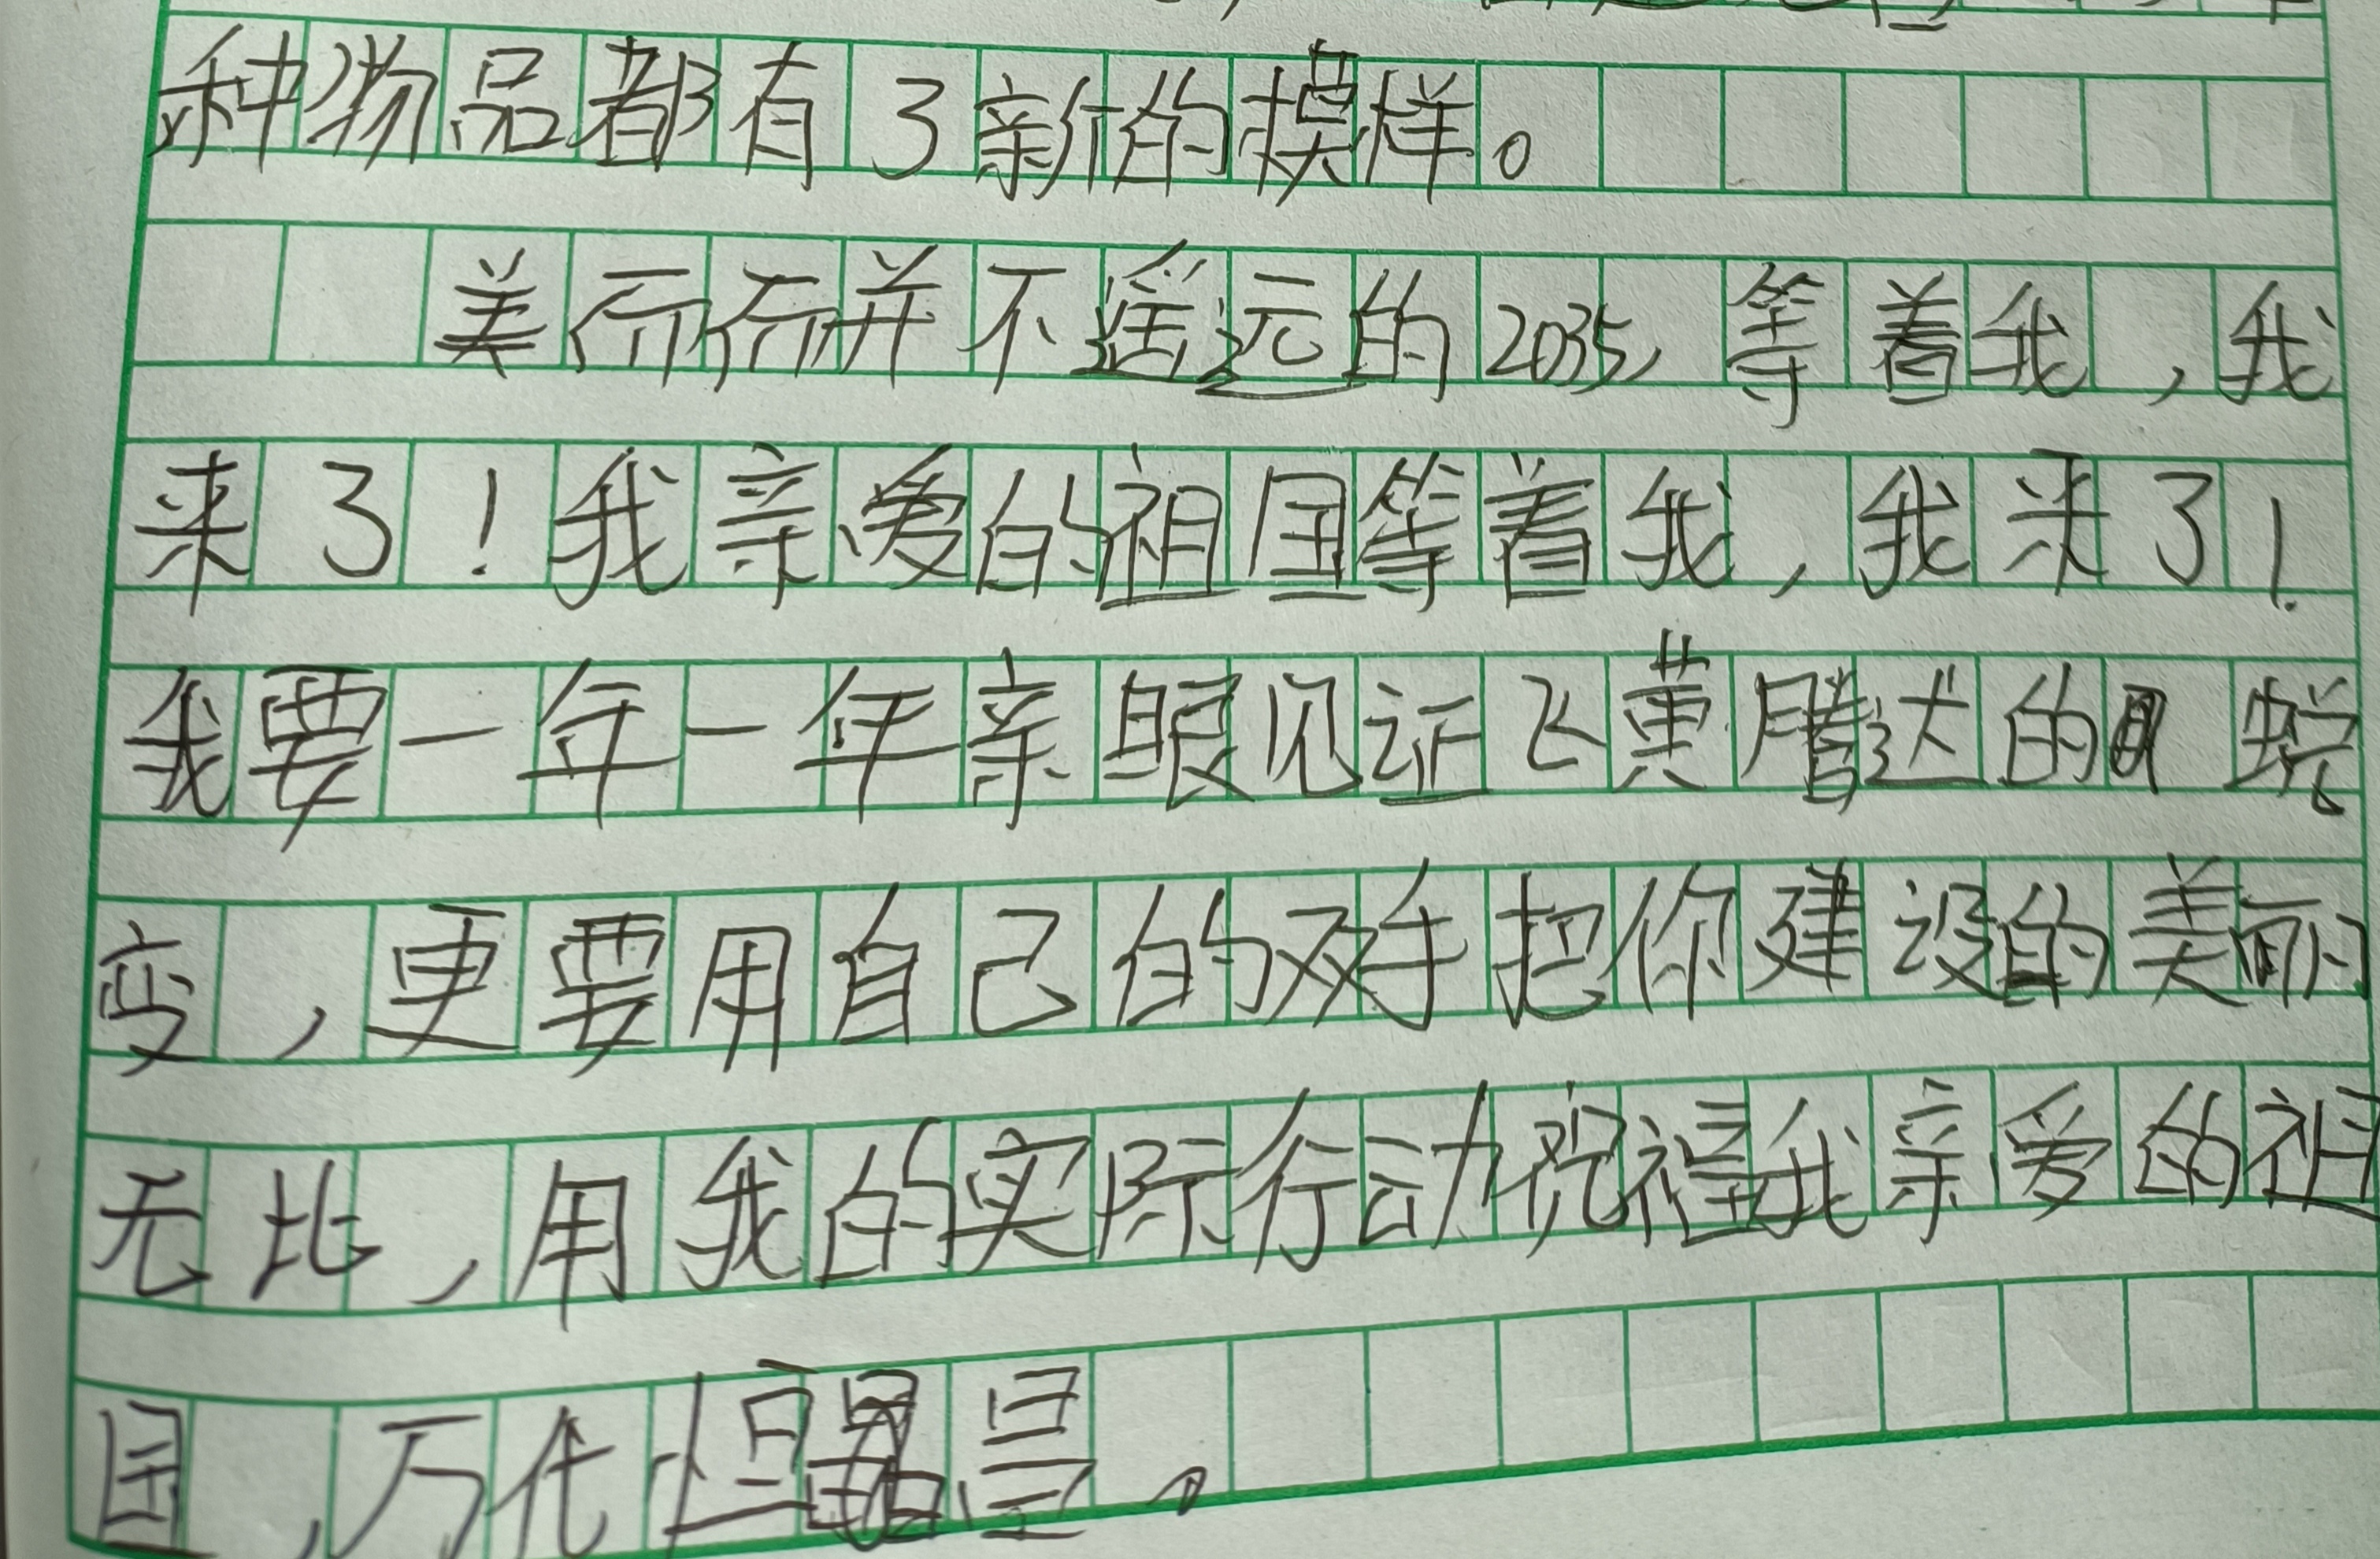 种物品都有了新的模样。
美而而并不遥远的2035，等着我，我
来了！我亲爱的祖国等着我，我来了！
我要一年一年亲眼见证飞黄腾达的蜕
变，更要用自己的双手把你建设的美丽
无比，用我的实际行动祝福我亲爱的祖
国，万代恒昌。